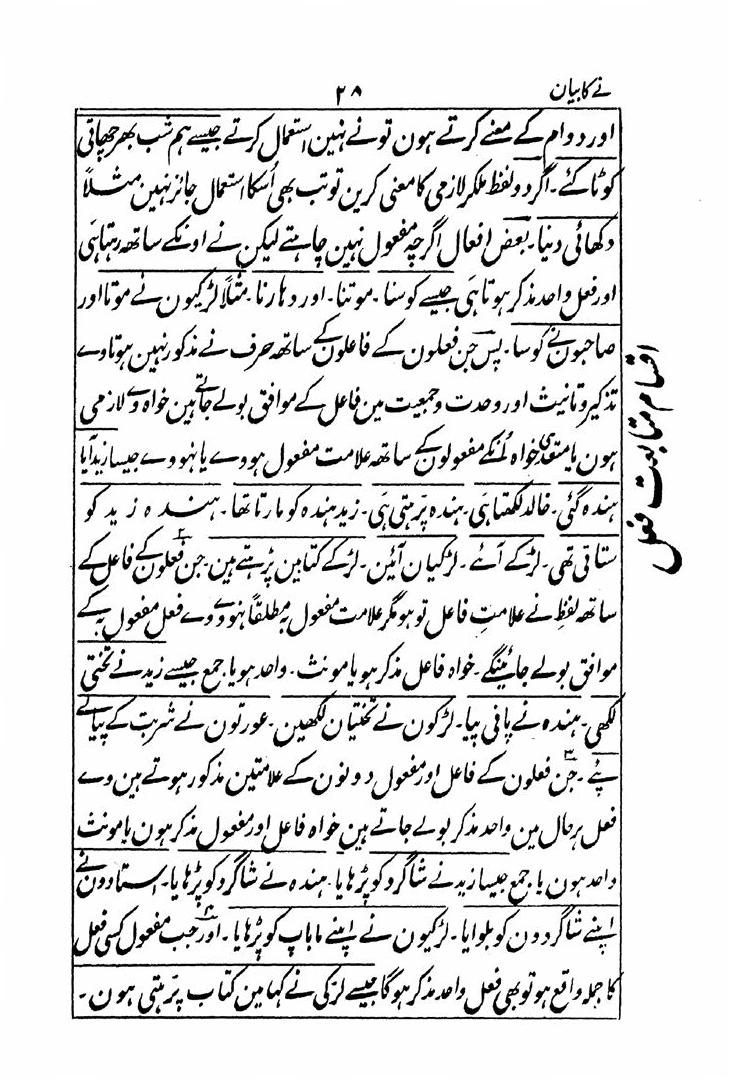 نے کا بیان
۲۸
اور دوام کے معنے کرتے ہون تو نے نہین استعمال کرتے جیسے ہم شب بھر چھاتی
کوٹا کئے۔ اگر دو لفظ ملکر لازمی کا معنی کرین تو تب بھی اُسکا استعمال جائز نہین مثلاً
دکھائی دینا۔ بعض افعال اگرچہ مفعول نہین چاہتے لیکن نے اونکے ساتھ رہتا ہی
اور فعل واحد مذکر ہوتا ہی جیسے کوسنا۔ موتنا۔ اور دہارنا۔ مثلاً لڑکیون نے موتا اور
صاحبون نے کوسا۔ پس جن فعلون کے فاعلون کے ساتھ حرف نے مذکور نہین ہوتا وے
تذکیر و تانیث اور وحدت و جمعیت مین فاعل کے موافق بولے جاتے ہین خواہ وے لازمی
ہون یا متعدی خواہ اُنکے مفعولون کے ساتھ علامت مفعول ہووے یا نہووے جیسا زید آیا
ہندہ گئی۔ خالد لکھتا ہی۔ ہندہ پڑہتی ہی۔ زید ہندہ کو مارتا تھا۔ ہندہ زید کو
ستاتی تھی۔ لڑکے آئے۔ لڑکیان آئین۔ لڑکے کتابین پڑہتے ہین۔ جن فعلون کے فاعل کے
ساتھ لفظِ نے علامتِ فاعل تو ہو مگر علامت مفعول بہ مطلقاً نہووے وے فعل مفعول بہ کے
موافق بولے جائینگے۔ خواہ فاعل مذکر ہو یا مونث۔ واحد ہو یا جمع جیسے زید نے تختی
لکھی۔ ہندہ نے پانی پیا۔ لڑکون نے تختیان لکھین۔ عورتون نے شربت کے پیالے
پئے۔ جن فعلون کے فاعل اور مفعول دونون کے علامتین مذکور ہوتے ہین وے
فعل ہر حال مین واحد مذکر بولے جاتے ہین خواہ فاعل اور مفعول مذکر ہون یا مونث
واحد ہون یا جمع جیسا زید نے شاگرد کو پڑہایا۔ ہندہ نے شاگرد کو پڑہایا۔ استادون نے
اپنے شاگردون کو بلوایا۔ لڑکیون نے اپنے ماباپ کو پڑہایا۔ اور جب مفعول کسی فعل
کا جملہ واقع ہو تو بھی فعل واحد مذکر ہوگا جیسے لڑکی نے کہا مین کتاب پڑہتی ہون۔
اقسام متابعت فعل